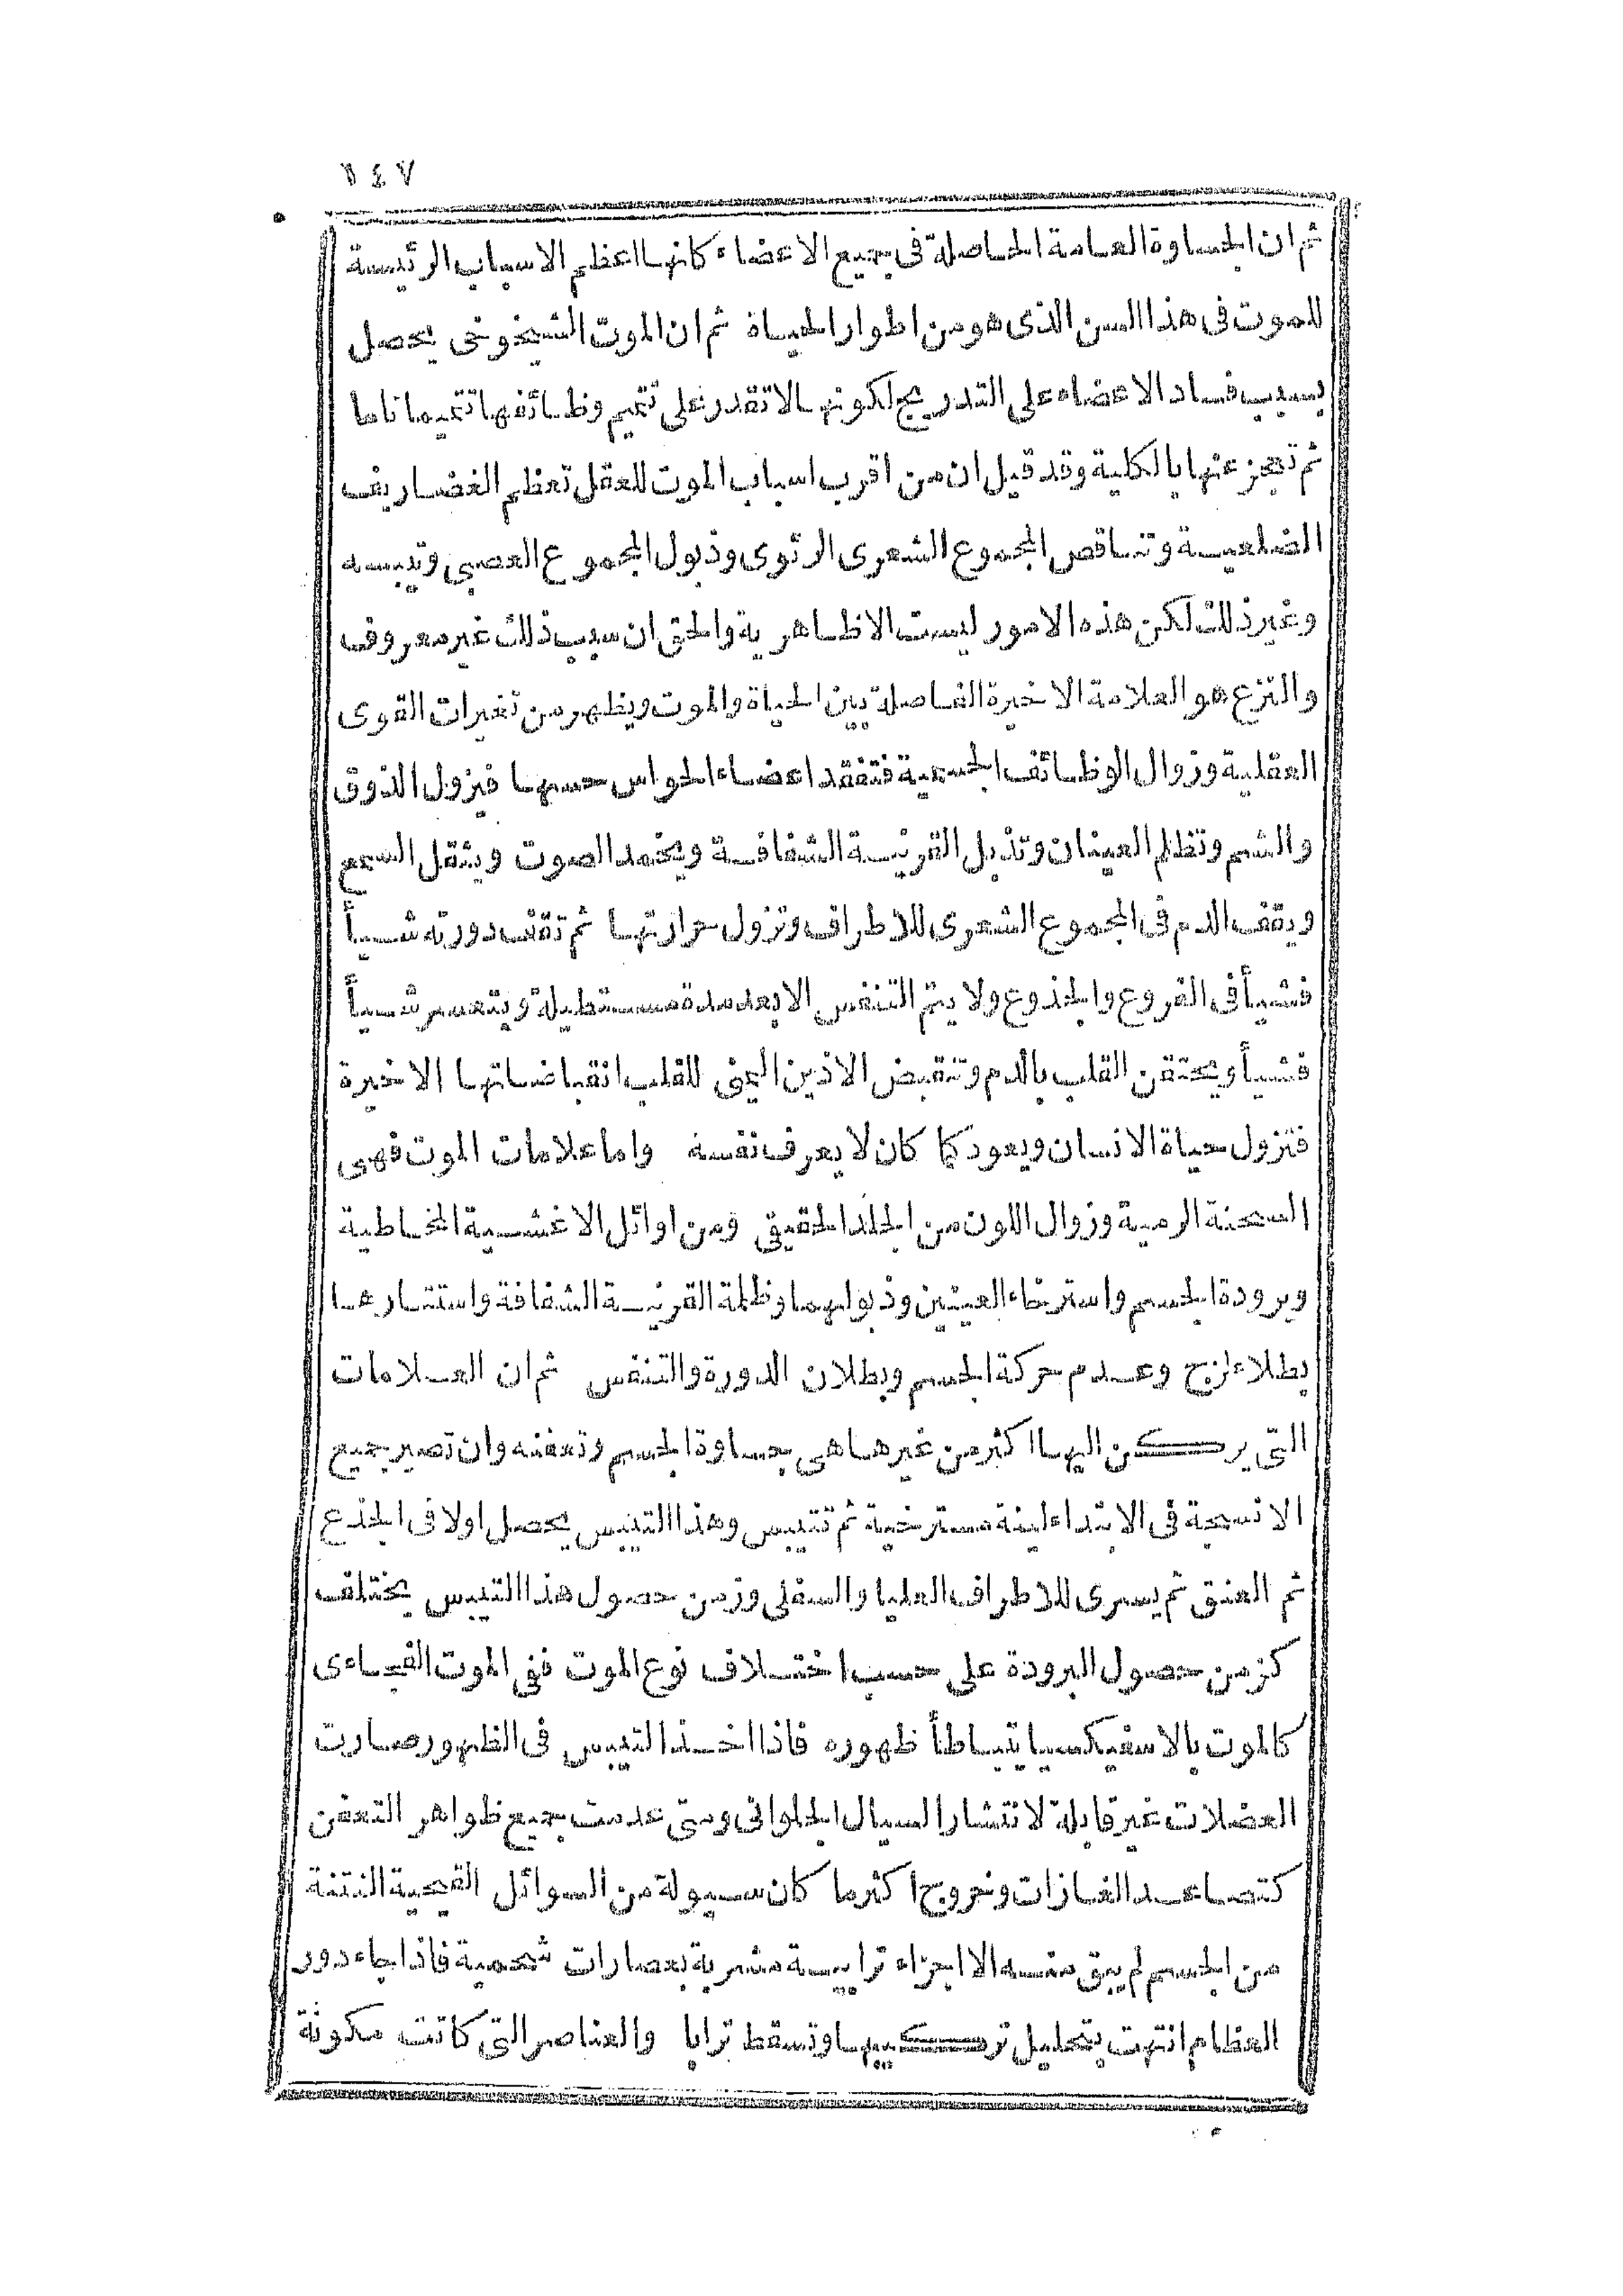 ١٤٧
ثم ان الجساوة العامة الحاصلة فى جميع الاعضاء كانها اعظم الاسباب الرئيسة
للموت فى هذا السن الذى هو من اطوار الحياة ثم ان الموت الشيخوخى يحصل
بسبب فساد الاعضاء على التدريج لكونها لا تقدر على تتميم وظائفها تتميما تاما
ثم تعجز عنها بالكلية وقد قيل ان من اقرب اسباب الموت للعقل تعظم الغضاريف
الضلعية وتناقص المجموع الشعرى الرئوى وذبول المجموع العصبى وتيبسه
وغير ذلك لكن هذه الامور ليست الا ظاهرية والحق ان سبب ذلك غير معروف
والنزع هو العلامة الاخيرة الفاصلة بين الحياة والموت ويظهر من تغيرات القوى
العقلية وزوال الوظائف الجسمية فتفقد اعضاء الحواس حسها فيزول الذوق
والشم وتظلم العينان وتذبل القرنية الشفافة ويخمد الصوت ويثقل السمع
ويقف الدم فى المجموع الشعرى للاطراف وتزول حرارتها ثم تقف دورته شيأ
فشيأ فى الفروع والجذوع ولا يتم التنفس الا بعد مدة مستطيلة ويتعسر شيأ
فشيأ ويحتقن القلب بالدم وتنقبض الاذين اليمنى للقلب انقباضاتها الاخيرة
فتزول حياة الانسان ويعود كما كان لا يعرف نفسه واما علامات الموت فهى
السحنة الرمية وزوال اللون من الجلد الحقيقى ومن اوائل الاغشية المخاطية
وبرودة الجسم واسترخاء العينين وذبولهما وظلمة القرنية الشفافة واستتارها
بطلاء لزج وعدم حركة الجسم وبطلان الدورة والتنفس ثم ان العلامات
التى يركن اليها اكثر من غيرها هى جساوة الجسم وتعفنه وان تصير جميع
الانسجة فى الابتداء لينة مسترخية ثم تتيبس وهذا التيبس يحصل اولا فى الجذع
ثم العنق ثم يسرى للاطراف العليا والسفلى وزمن حصول هذا التيبس يختلف
كزمن حصول البرودة على حسب اختلاف نوع الموت ففى الموت الفجاءى
كالموت بالاسفيكسيا يتباطأ ظهوره فاذا اخذ التيبس فى الظهور صارت
العضلات غير قابلة لانتشار السيال الجلوانى ومتى عدمت جميع ظواهر التعفن
كتصاعد الغازات وخروج اكثر ما كان سيولة من السوائل القيحية النتنة
من الجسم لم يبق منه الا اجزاء ترابية مشربة بعصارات شحمية فاذا جاء دور
العظام انتهت بتحليل تركيبها وتسقط ترابا والعناصر التى كانت مكونة